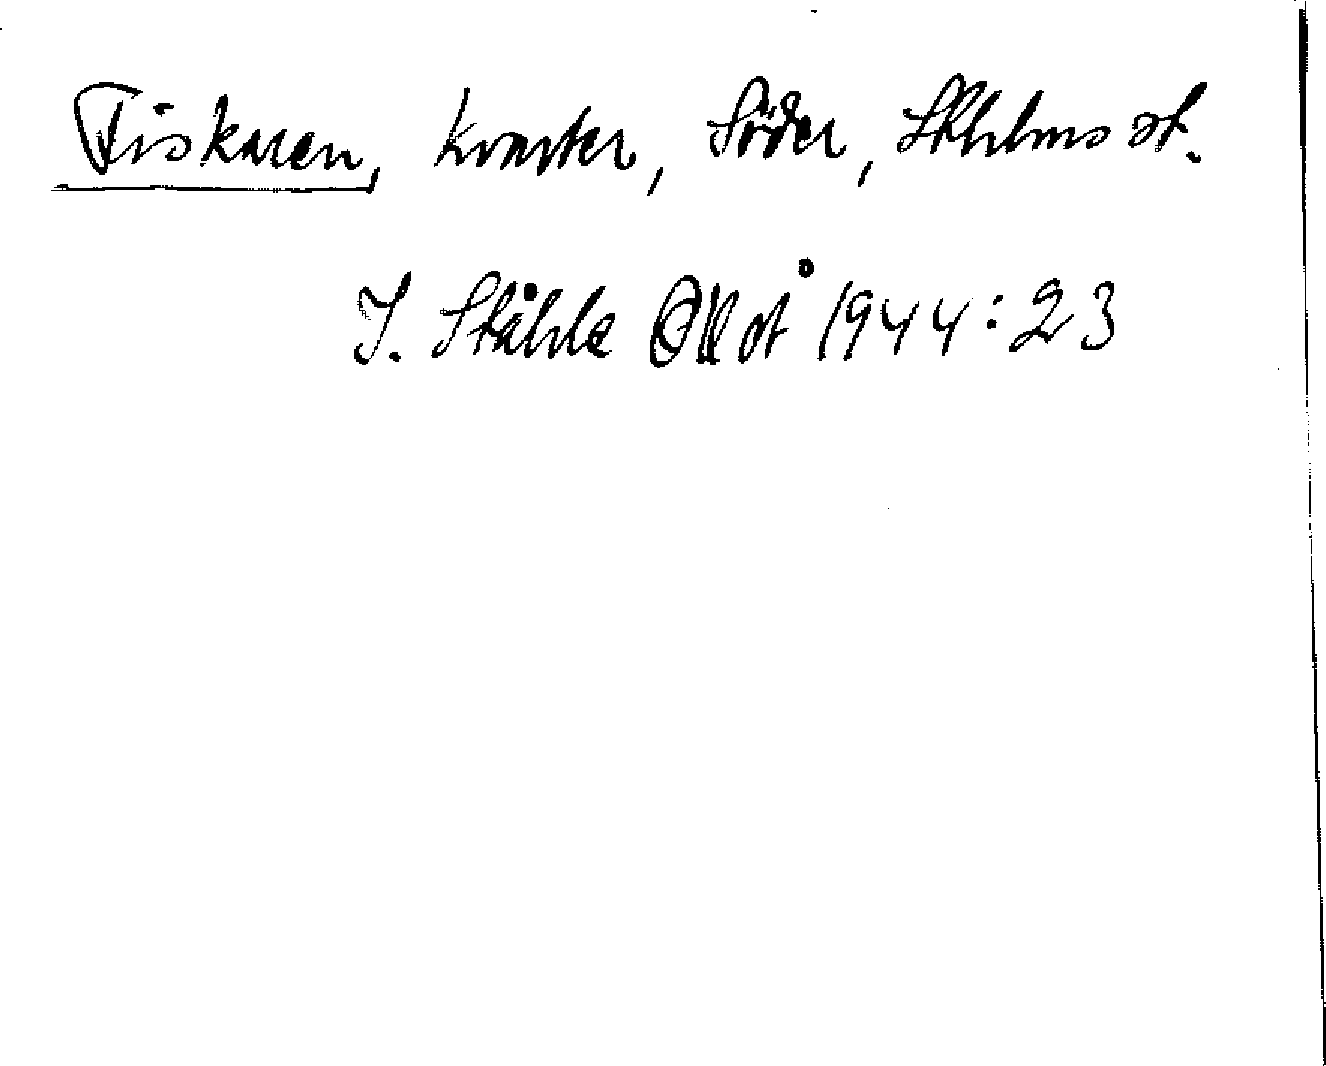 Fiskaren, kvarter, Söder, Sthlms st.
I. Ståhle 1944:23